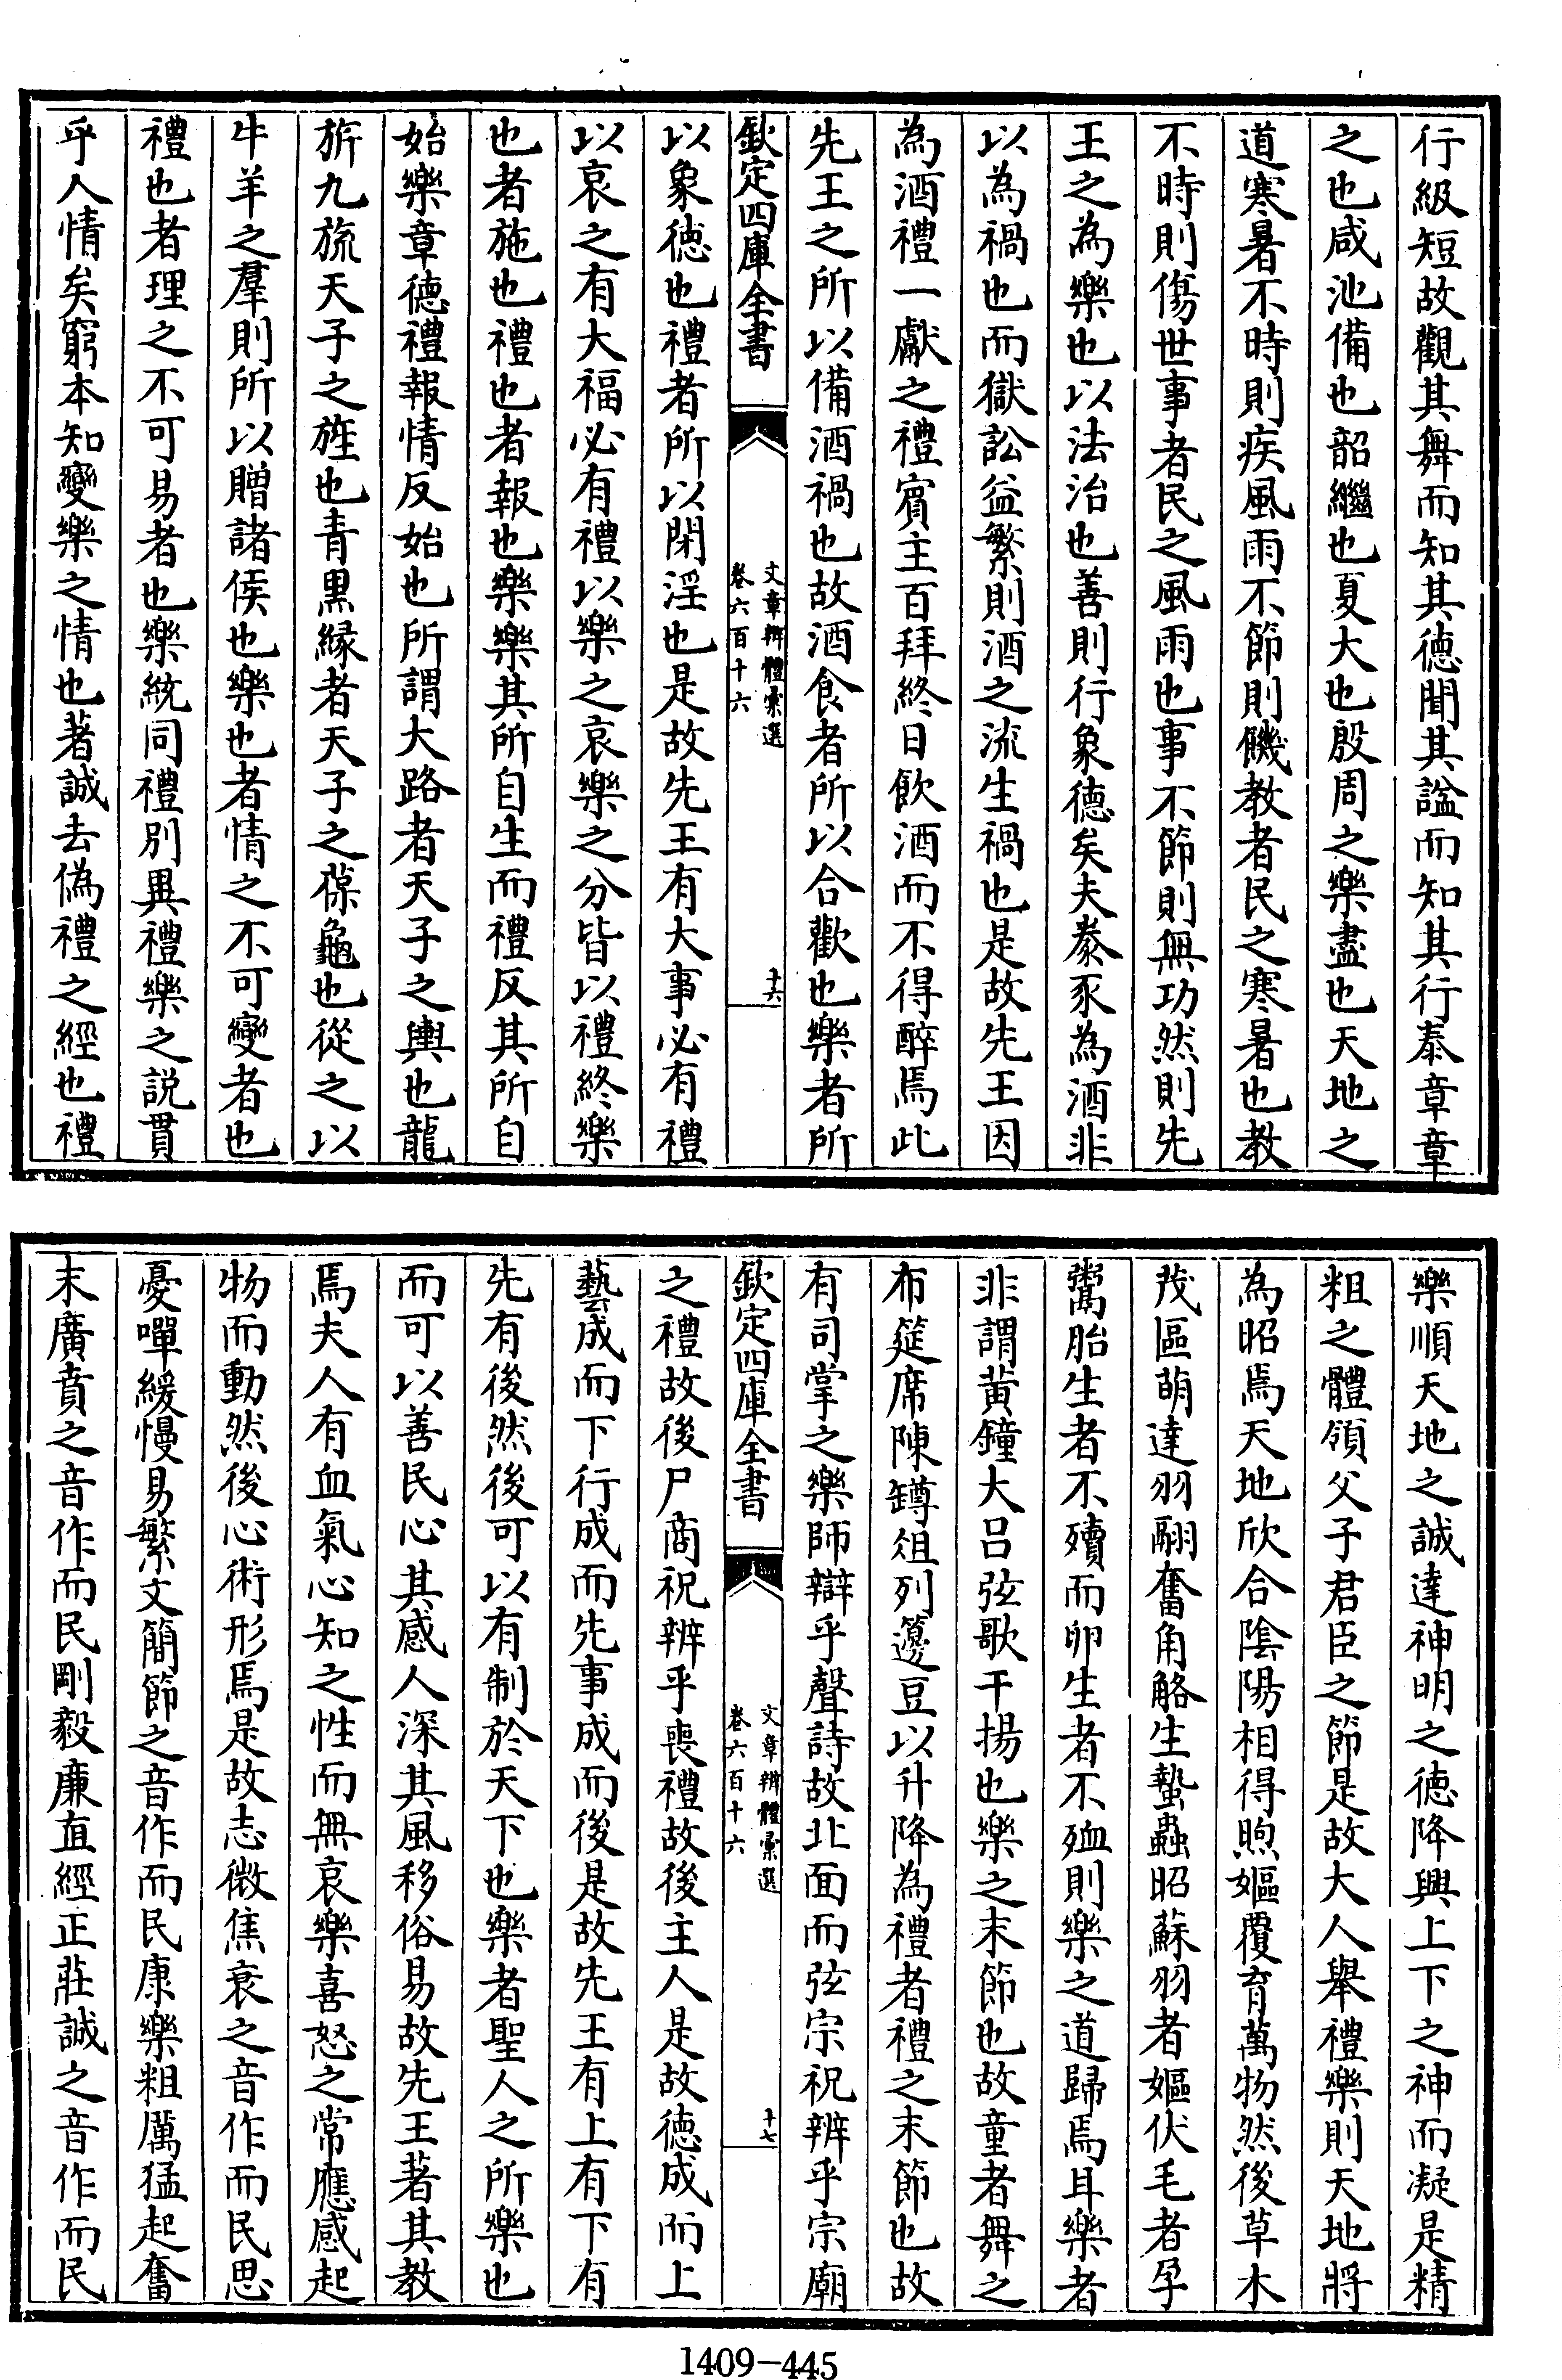 行級短故觀其舞而知其德聞其諡而知其行泰章章
之也咸池備也韶繼也夏大也殷周之樂盡也天地之
道寒暑不時則疾風雨不節則饑教者民之寒暑也教
不時則傷世事者民之風雨也事不節則無功然則先
王之為樂也以法治也善則行象德矣夫豢豕為酒非
以為禍也而獄訟益繁則酒之流生禍也是故先王因
為酒禮一獻之禮賓主百拜終日飲酒而不得醉焉此
先王之所以備酒禍也故酒食者所以合歡也樂者所
欽定四庫全書
文章辨體彙選
卷六百十六
十六
以象德也禮者所以閉淫也是故先王有大事必有禮
以哀之有大福必有禮以樂之哀樂之分皆以禮終樂
也者施也禮也者報也樂樂其所自生而禮反其所自
始樂章德禮報情反始也所謂大路者天子之輿也龍
旂九旒天子之旌也青黒緣者天子之葆龜也從之以
牛羊之羣則所以贈諸侯也樂也者情之不可變者也
禮也者理之不可易者也樂統同禮別異禮樂之説貫
乎人情矣窮本知變樂之情也著誠去偽禮之經也禮
樂順天地之誠達神明之德降興上下之神而凝是精
粗之體領父子君臣之節是故大人舉禮樂則天地將
為昭焉天地欣合陰陽相得煦嫗覆育萬物然後草木
茂區萌達羽翮奮角觡生蟄蟲昭蘇羽者嫗伏毛者孕
鬻胎生者不殰而卵生者不殈則樂之道歸焉耳樂者
非謂黄鐘大呂弦歌干揚也樂之末節也故童者舞之
布筵席陳罇俎列籩豆以升降為禮者禮之末節也故
有司掌之樂師辯乎聲詩故北面而弦宗祝辨乎宗廟
欽定四庫全書
文章辨體彙選
卷六百十六
十七
之禮故後尸商祝辨乎喪禮故後主人是故德成而上
藝成而下行成而先事成而後是故先王有上有下有
先有後然後可以有制於天下也樂者聖人之所樂也
而可以善民心其感人深其風移俗易故先王著其教
焉夫人有血氣心知之性而無哀樂喜怒之常應感起
物而動然後心術形焉是故志微焦衰之音作而民思
憂嘽緩慢易繁文簡節之音作而民康樂粗厲猛起奮
末廣賁之音作而民剛毅廉直經正莊誠之音作而民
1409-445